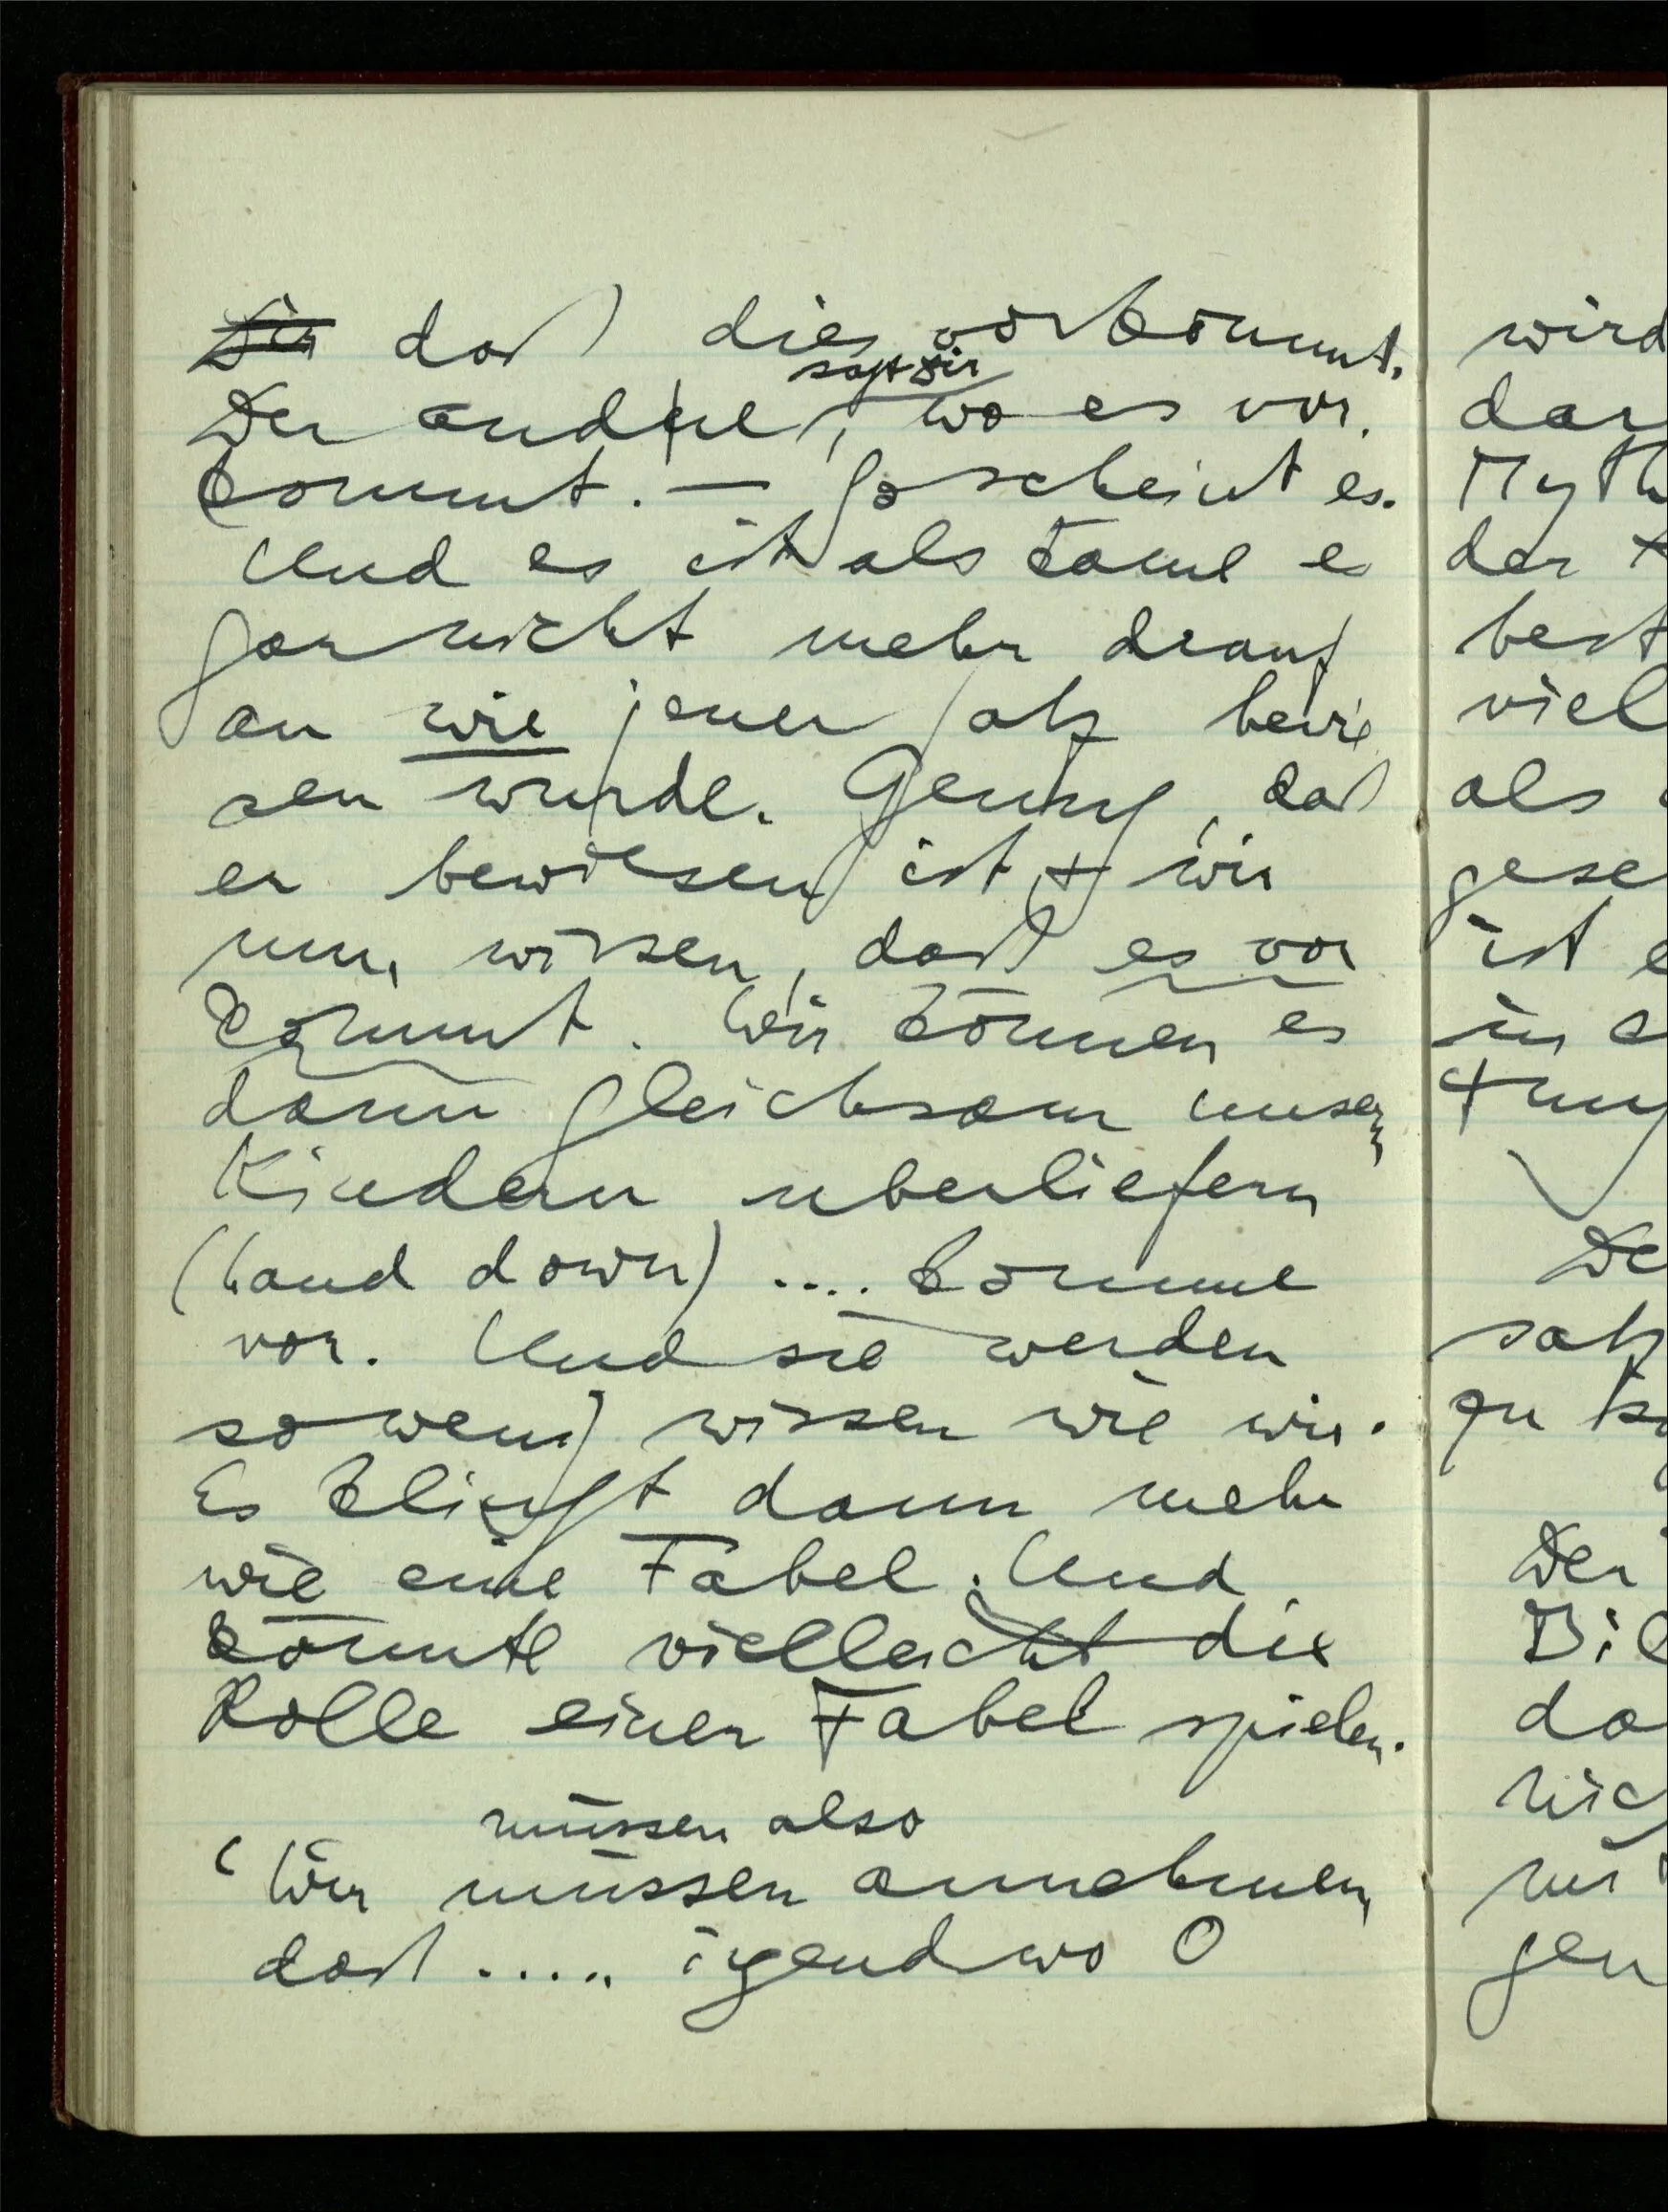 Dir daß dies vorkommt.
sagt Dir
Der andere, wo es vor-
kommt. — So scheint es.
Und es ist als käme es
gar nicht mehr drauf
an wie jener Satz bewie-
sen wurde. Genug, daß
er bewiesen ist & wir
nun wissen, daß es vor
kommt. Wir können es
dann gleichsam unsern
Kindern überliefern
(hand down) .... komme
vor. Und sie werden
so wenig wissen wie wir.
Es klingt dann mehr
wie eine Fabel. Und
könnte vielleicht die
Rolle einer Fabel spielen.
müssen also
‘Wir müssen annehmen,
daß ..... irgendwo O
wird
der
best
viel
als
ist e
Der